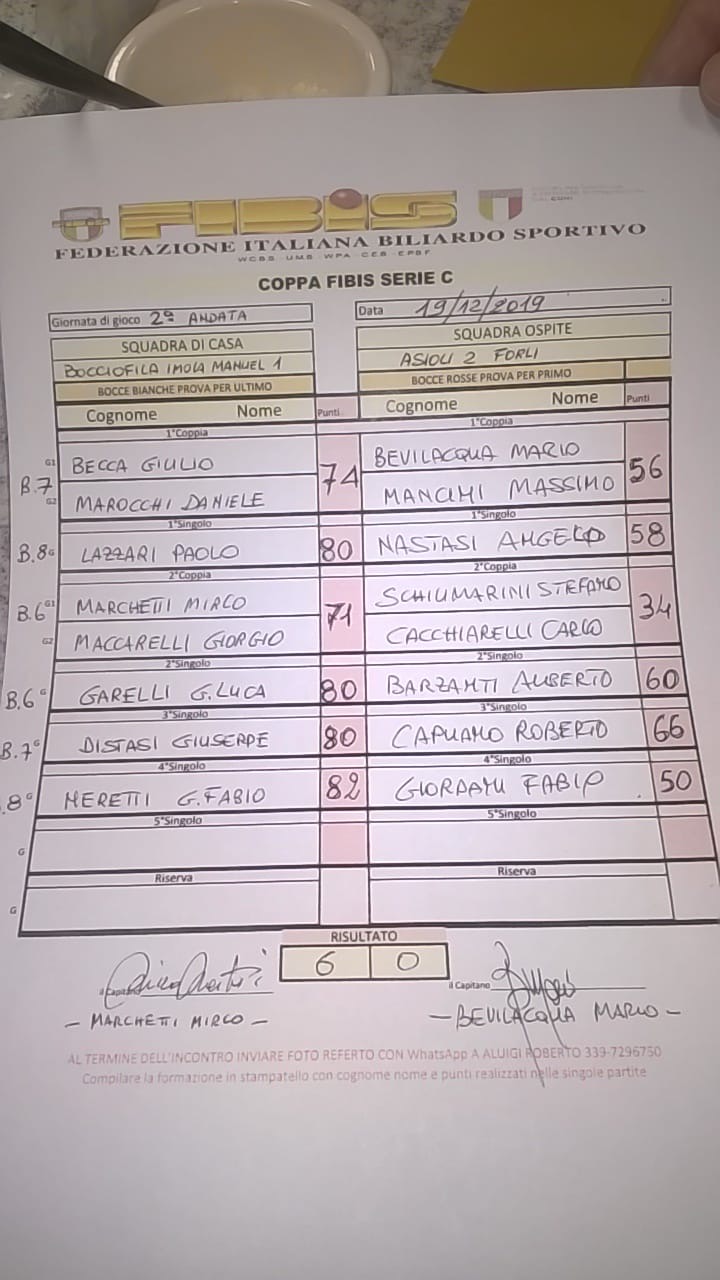 FIBIS
FEDERAZIONE ITALIANA BILIARDO SPORTIVO
WCBS - UMB - WPA - CEB - EPBF
COPPA FIBIS SERIE C
Giornata di gioco 2ª ANDATA Data 19/12/2019
SQUADRA DI CASA SQUADRA OSPITE
BOCCIOFILA IMOLA MANUEL 1 ASIOLI 2 FORLI
BOCCE BIANCHE PROVA PER ULTIMO BOCCE ROSSE PROVA PER PRIMO
Cognome Nome Punti Cognome Nome Punti
1°Coppia 1°Coppia
B.7 G1 BECCA GIULIO 74 BEVILACQUA MARIO 56
G2 MAROCCHI DANIELE MANCINI MASSIMO
1°Singolo 1°Singolo
B.8 G LAZZARI PAOLO 80 NASTASI ANGELO 58
2°Coppia 2°Coppia
B.6 G1 MARCHETTI MIRCO 71 SCHIUMARINI STEFANO 34
G2 MACCARELLI GIORGIO CACCHIARELLI CARLO
2°Singolo 2°Singolo
B.6 G GARELLI G.LUCA 80 BARZANTI AUBERTO 60
3°Singolo 3°Singolo
B.7 G DISTASI GIUSEPPE 80 CAPUANO ROBERTO 66
4°Singolo 4°Singolo
.8 G NERETTI G.FABIO 82 GIORDANI FABIO 50
5°Singolo 5°Singolo
G
Riserva Riserva
G
RISULTATO
6 0
il Capitano il Capitano
- MARCHETTI MIRCO - - BEVILACQUA MARIO -
AL TERMINE DELL'INCONTRO INVIARE FOTO REFERTO CON WhatsApp A ALUIGI ROBERTO 339-7296750
Compilare la formazione in stampatello con cognome nome e punti realizzati nelle singole partite